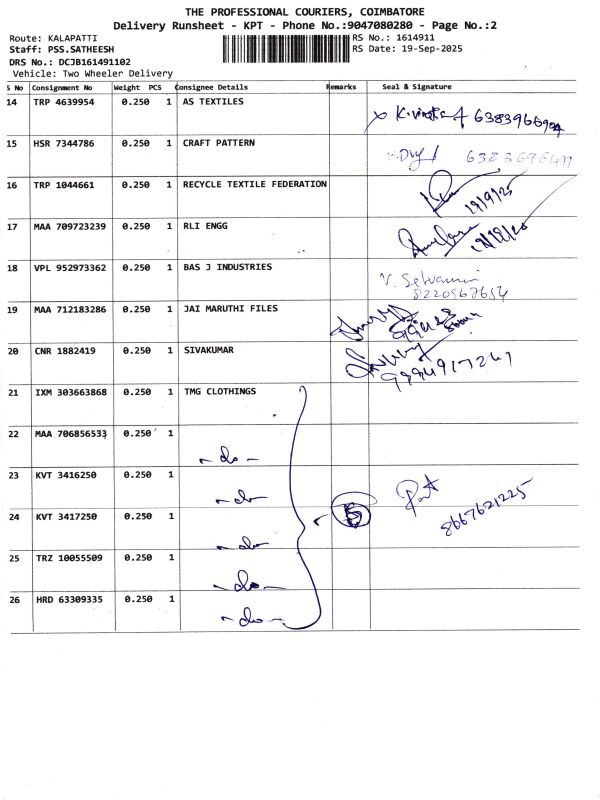 THE PROFESSIONAL COURIERS, COIMBATORE
Delivery Runsheet - KPT - Phone No.:9047080280 - Page No.:2
Route: KALAPATTI RS No.: 1614911
Staff: PSS.SATHEESH RS Date: 19-Sep-2025
DRS No.: DCJB161491102
Vehicle: Two Wheeler Delivery
S No Consignment No Weight PCS Consignee Details Remarks Seal & Signature
14 TRP 4639954 0.250 1 AS TEXTILES
15 HSR 7344786 0.250 1 CRAFT PATTERN
16 TRP 1044661 0.250 1 RECYCLE TEXTILE FEDERATION
19/9/25
17 MAA 709723239 0.250 1 RLI ENGG
18 VPL 952973362 0.250 1 BAS J INDUSTRIES
V. Selvamani
8220567654
19 MAA 712183286 0.250 1 JAI MARUTHI FILES
20 CNR 1882419 0.250 1 SIVAKUMAR
9994917247
21 IXM 303663868 0.250 1 TMG CLOTHINGS
22 MAA 706856533 0.250 1
- do -
23 KVT 3416250 0.250 1
- do -
24 KVT 3417250 0.250 1
8667621225
- do -
25 TRZ 10055509 0.250 1
- do -
26 HRD 63309335 0.250 1
- do -